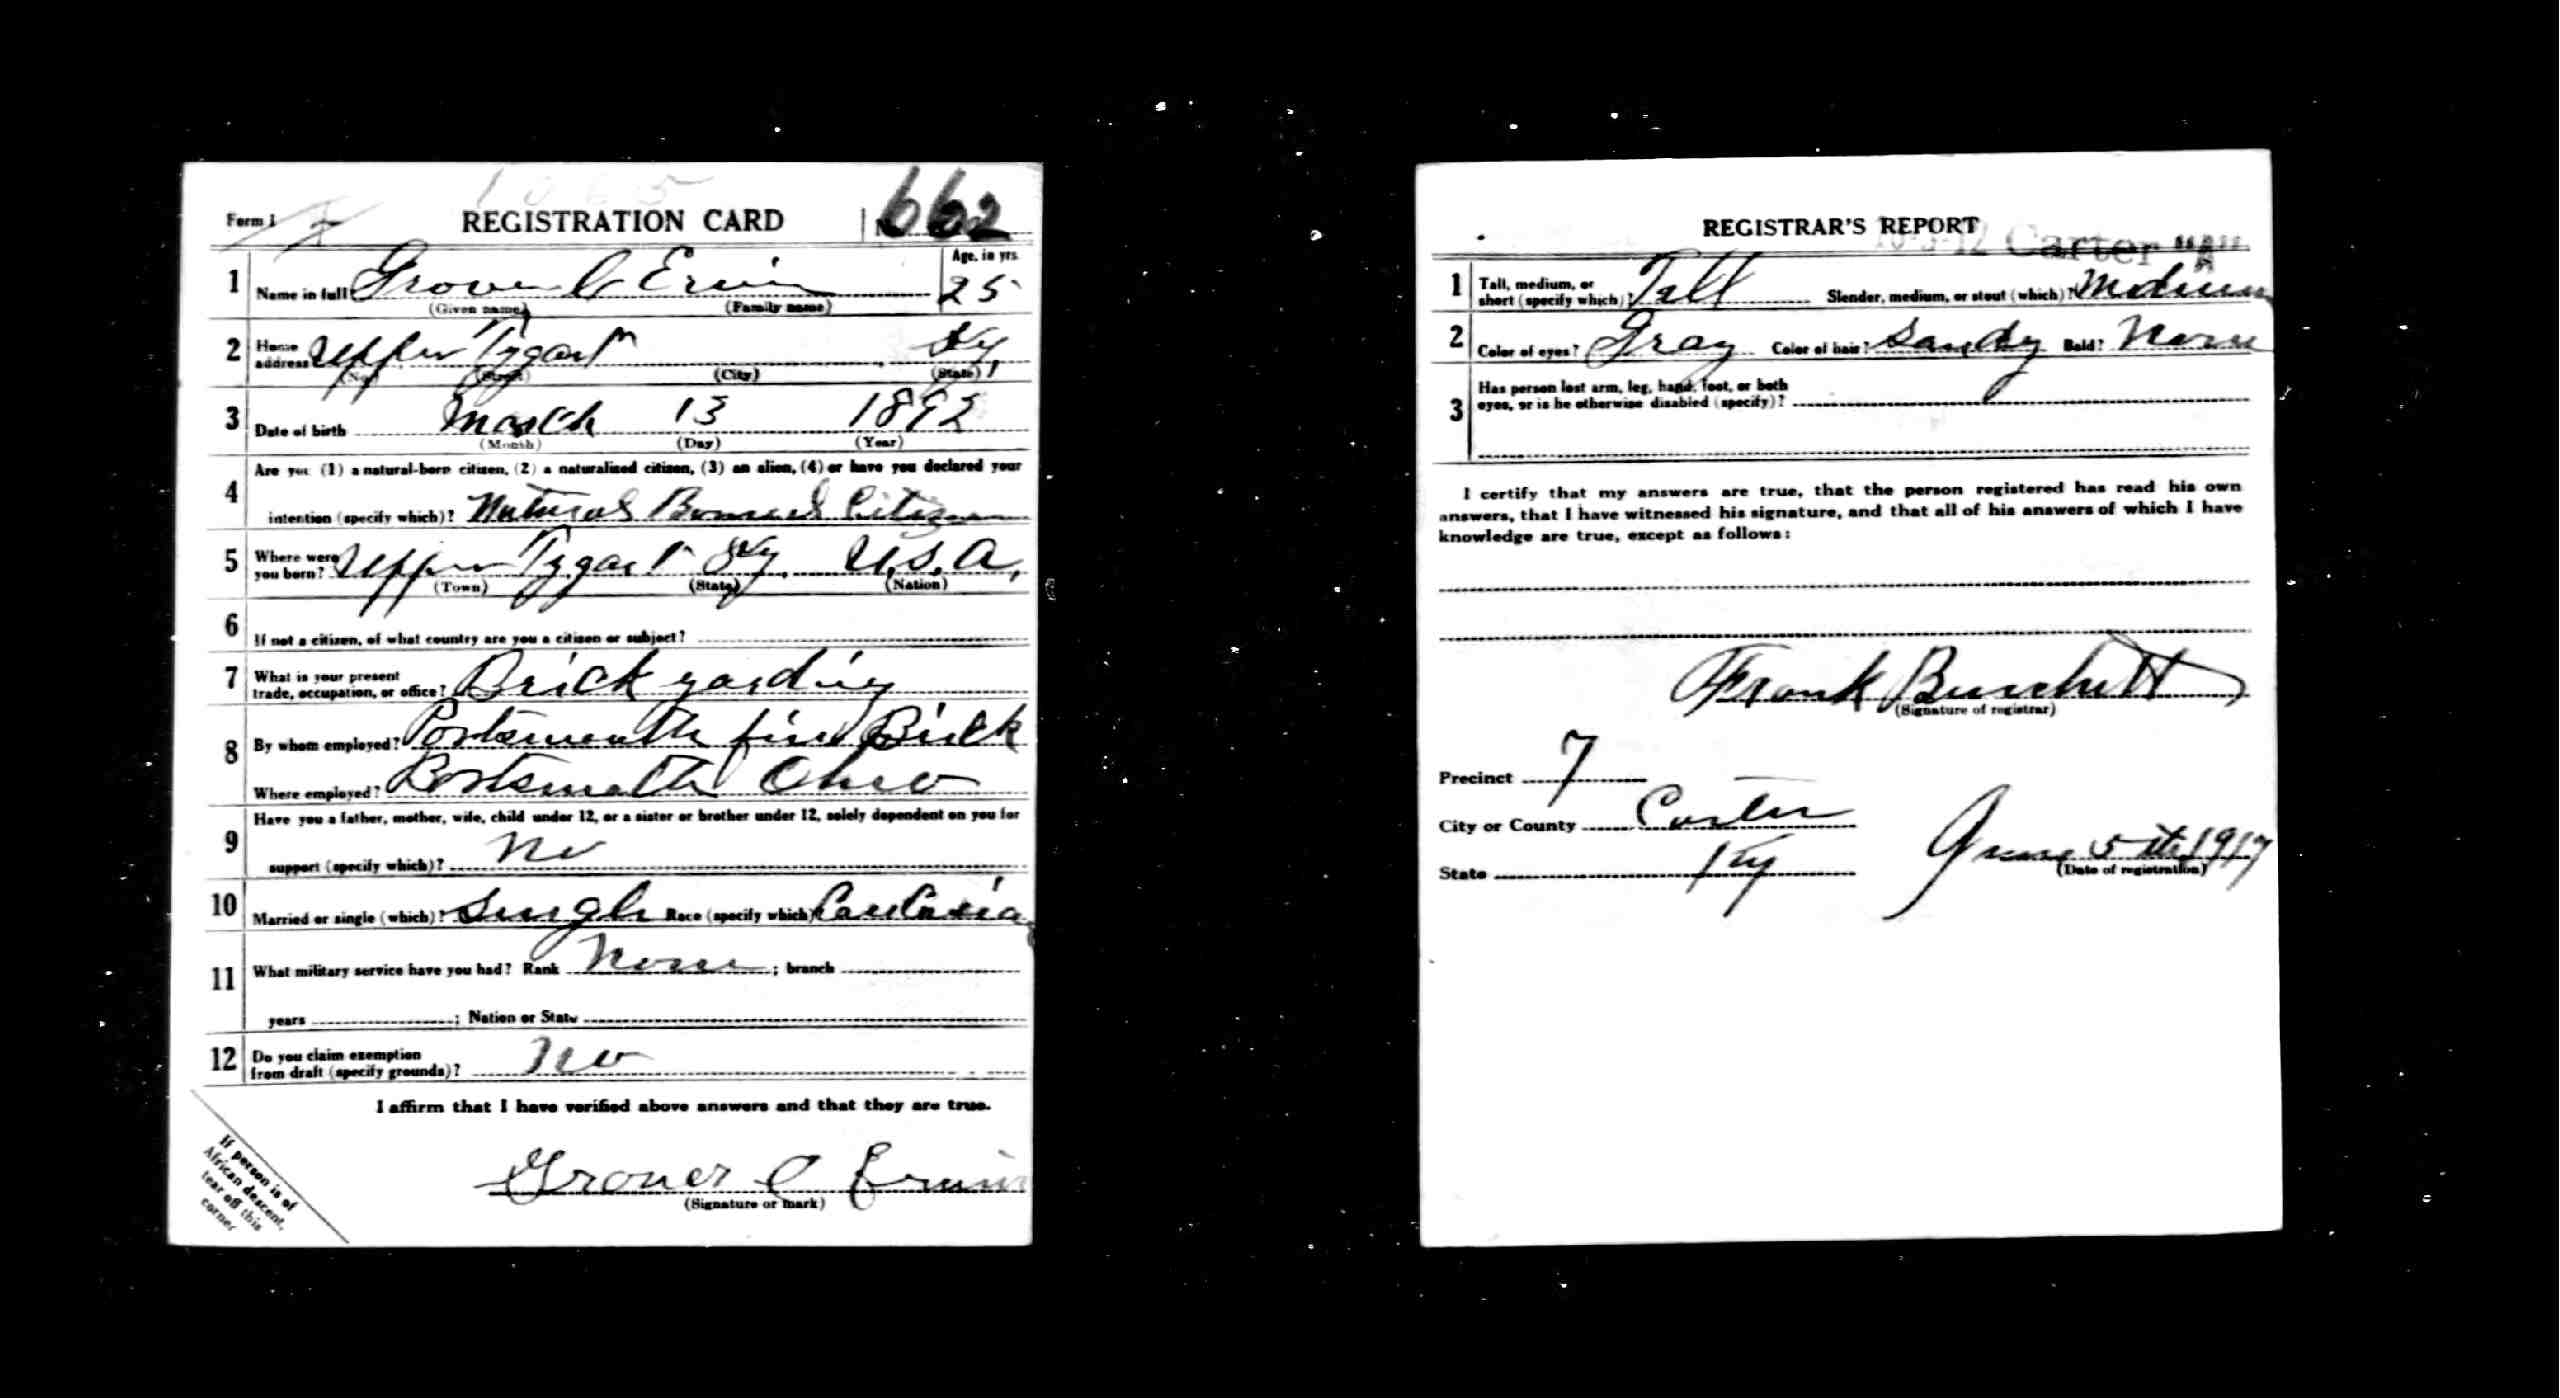 1065
Form 1 REGISTRATION CARD No. 662
1 Name in full Grover C Ervin Age, in yrs. 25
(Given name) (Family name)
2 Home address Upper Tygart Ky,
(No.) (Street) (City) (State)
3 Date of birth March 13 1892
(Month) (Day) (Year)
4 Are you (1) a natural-born citizen, (2) a naturalized citizen, (3) an alien, (4) or have you declared your
intention (specify which)? Natural Borned Citizen
5 Where were you born? Upper Tygart Ky. U.S.A.
(Town) (State) (Nation)
6 If not a citizen, of what country are you a citizen or subject?
7 What is your present
trade, occupation, or office? Brick yarding
8 By whom employed? Portsmouth fire Brick
Where employed? Portsmouth Ohio
9 Have you a father, mother, wife, child under 12, or a sister or brother under 12, solely dependent on you for
support (specify which)? No
10 Married or single (which)? Single Race (specify which) Caucasian
11 What military service have you had? Rank None ; branch
years ; Nation or State
12 Do you claim exemption
from draft (specify grounds)? No
I affirm that I have verified above answers and that they are true.
Grover C Ervin
(Signature or mark)
If person is of
African descent,
tear off this
corner
REGISTRAR'S REPORT
Carter "A"
1 Tall, medium, or
short (specify which)? Tall Slender, medium, or stout (which)? Medium
2 Color of eyes? Gray Color of hair? Sandy Bald? None
3 Has person lost arm, leg, hand, foot, or both
eyes, or is he otherwise disabled (specify)?
I certify that my answers are true, that the person registered has read his own
answers, that I have witnessed his signature, and that all of his answers of which I have
knowledge are true, except as follows:
Frank Burchett
(Signature of registrar)
Precinct 7
City or County Carter
State Ky June 5th 1917
(Date of registration)